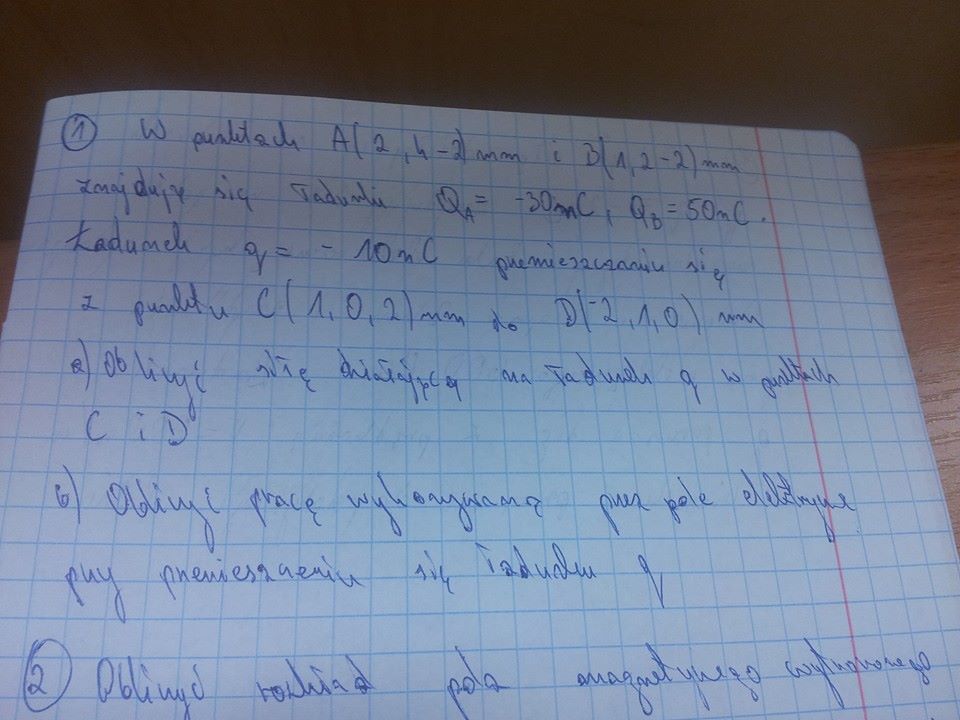 ① W punktach A(2,4-2)mm i B(1,2-2)mm
znajdują się ładunki QA= -30nC, QB=50nC.
Ładunek q= -10nC przemieszczaniu się
z punktu C(1,0,2)mm do D(-2,1,0)mm
a) Obliczyć siłę działającą na ładunek q w punktach
C i D
b) Obliczyć pracę wykonywaną przez pole elektryczne
przy przemieszczeniu się ładunku q
② Obliczyć rozkład pola magnetycznego wytworzonego